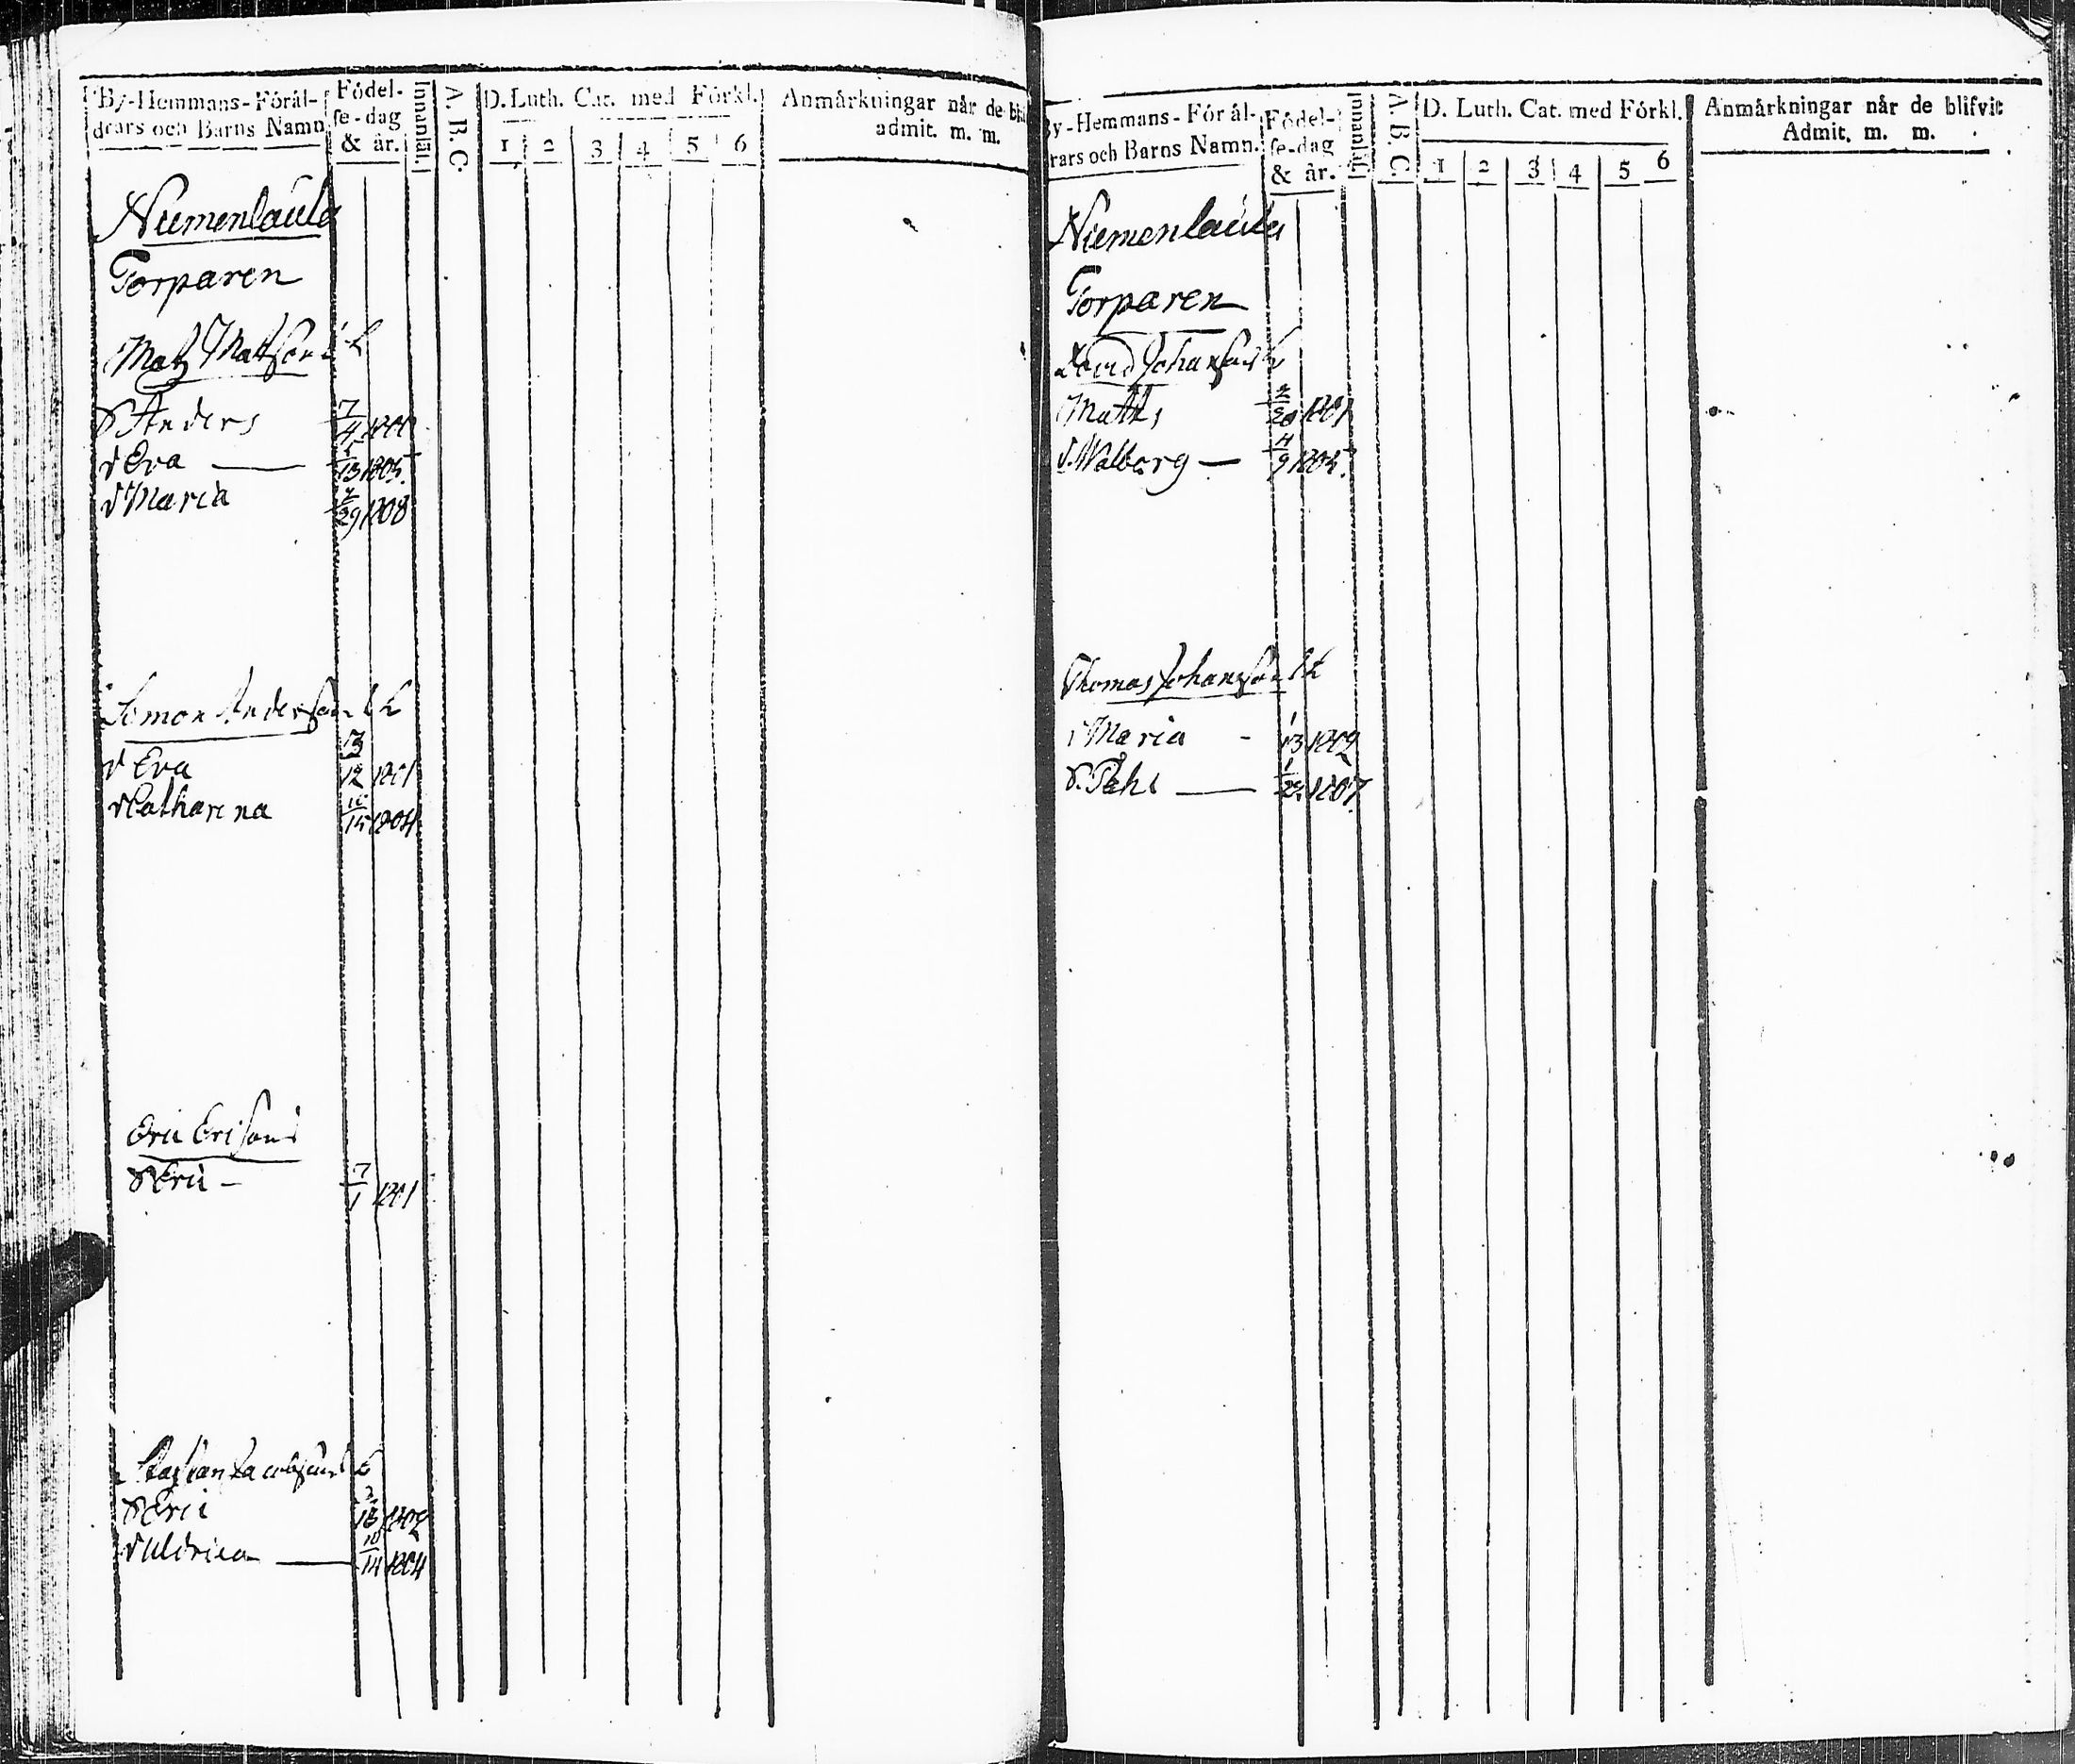 By-Hemmans-Förål-
drars och Barns Namn
Födel-
se-dag
& år.
Innanläs.
A. B. C.
D. Luth. Cat. med Förkl.
1 2 3 4 5 6
Anmärkningar når de
admit. m. m.
Niemenlauta
Torparen
Matz Matsons
S Anders 7/4 1800
d Eva 13 1805
d Maria 29 1808
Simon Anderson
d Eva 12 1801
d Catharina 10/15 1804
Eric Ericsons
S Eric 7/1 1801
Staffan Jacobsons
S Eric 1802
d Uldrica 10/14 1804
By-Hemmans-Förål-
rars och Barns Namn.
Födel-
se-dag
& år.
Innanläs.
A. B. C.
D. Luth. Cat. med Förkl.
1 2 3 4 5 6
Anmärkningar når de blifvit
Admit. m. m.
Niemenlauta
Torparen
Johanson
Matts 2/20 1801
d. Walborg 4/9 1805
Thomas Johanson
d Maria 1/13 1802
S. Påhl 1807